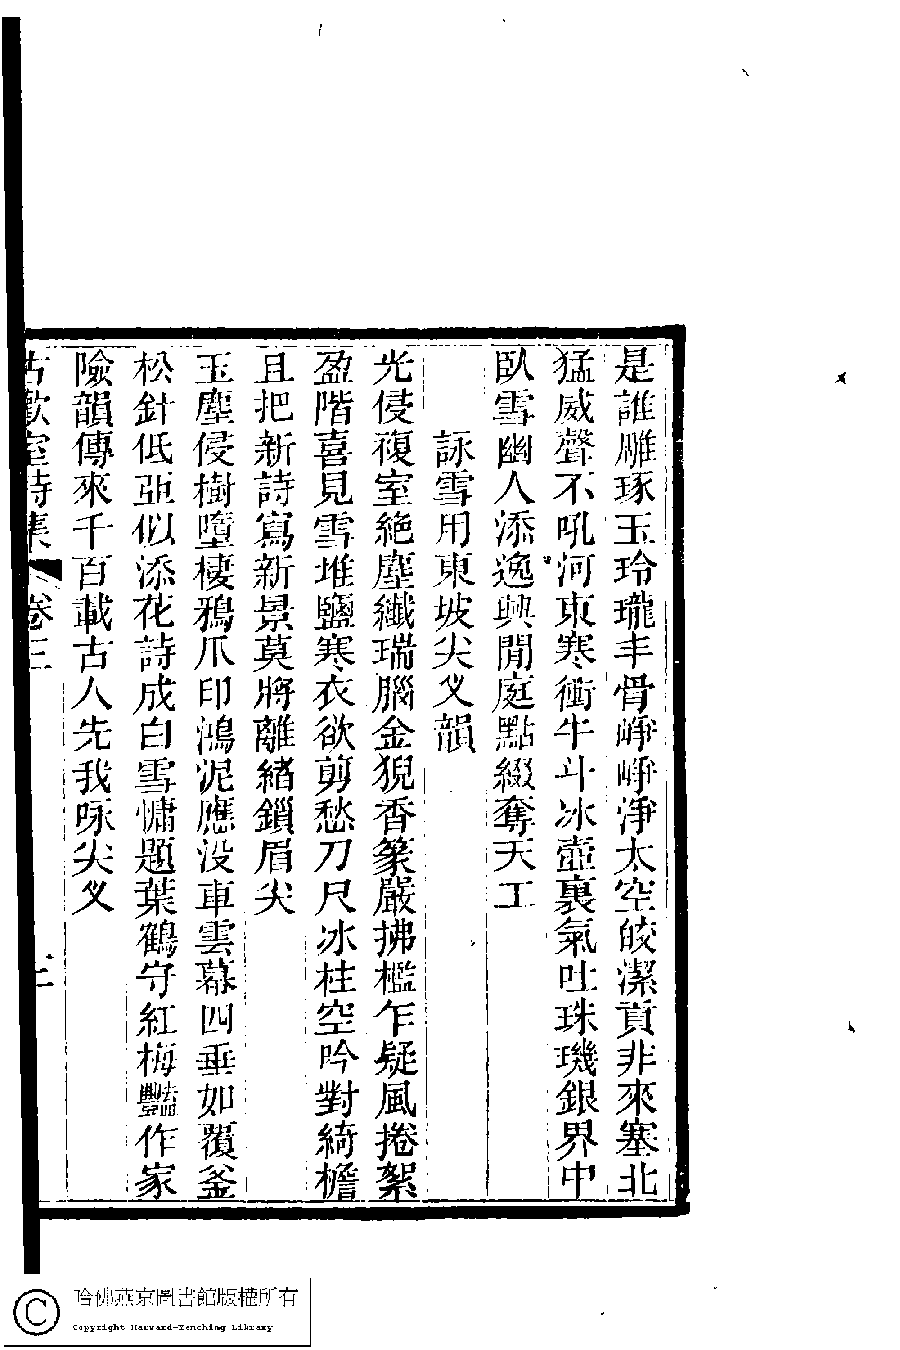 是誰雕琢玉玲瓏丰骨崢崢淨太空皎潔貢非來塞北
猛威聲不吼河東寒衝牛斗冰壺裏氣吐珠璣銀界中
臥雪幽人添逸興閒庭點綴奪天工
詠雪用東坡尖叉韻
光侵複室絶塵纖瑞腦金猊香篆嚴拂檻乍疑風捲絮
盈階喜見雪堆鹽寒衣欲剪愁刀尺冰柱空吟對綺檐
且把新詩寫新景莫將離緒鎖眉尖
玉塵侵樹墮棲鴉爪印鴻泥應没車雲幕四垂如覆釜
松針低亞似添花詩成白雪慵題葉鶴守紅梅豔作家
險韻傳來千百載古人先我咏尖叉
古歡室詩集 卷三 三
哈佛燕京圖書館版權所有
Copyright Harvard-Yenching Library